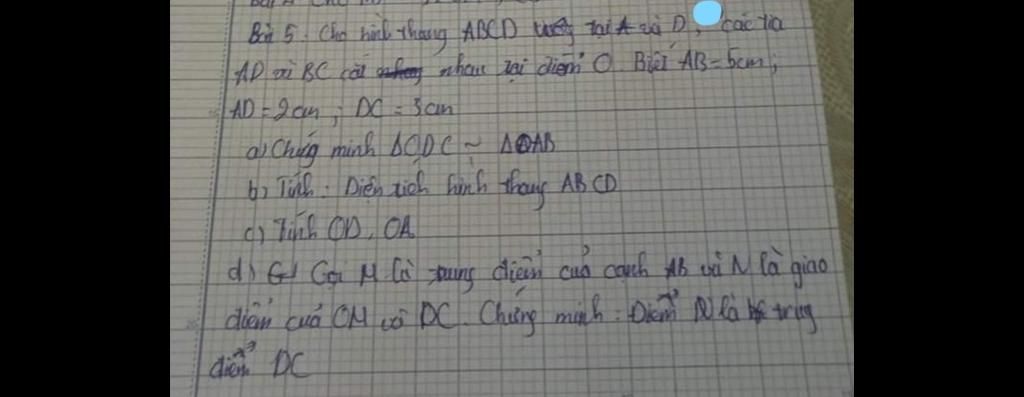 Bài 5. Cho hình thang ABCD vuông tại A và D, các tia
AD và BC cắt nhau tại điểm O. Biết AB = 5cm;
AD = 2cm; DC = 3cm
a) Chứng minh ΔODC ~ ΔOAB
b) Tính. Diện tích hình thang ABCD
c) Tính OD, OA
d) Gọi M là trung điểm của cạnh AB và N là giao
điểm của OM với DC. Chứng minh: Điểm N là trung
điểm DC